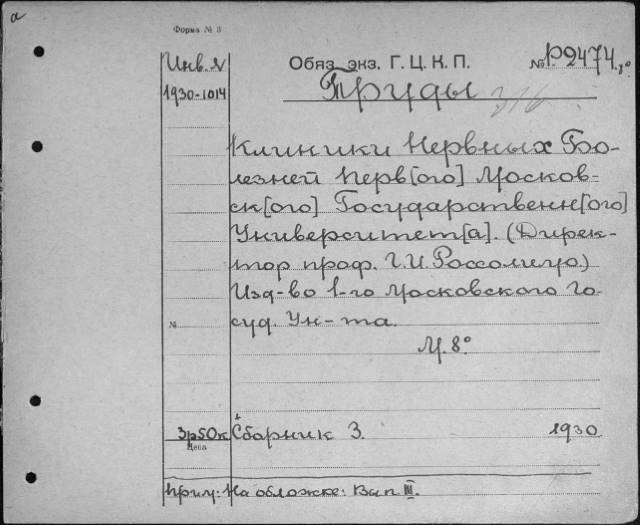 а
Форма № 3
Инв. №
1930-1014
Обяз. экз. Г. Ц. К. П.
№ Р2474
Труды
316
Клиники Нервных Бо-
лезней Перв[ого] Москов-
ск[ого] Государственн[ого]
Университет[а]. (Дирек-
тор проф. Г.И. Россолимо.)
Изд-во 1-го Московского Го-
суд. Ун-та.
№
М. 8°
3р50к
Цена
Сборник 3.
1930
Прим: На обложке: Вып III.